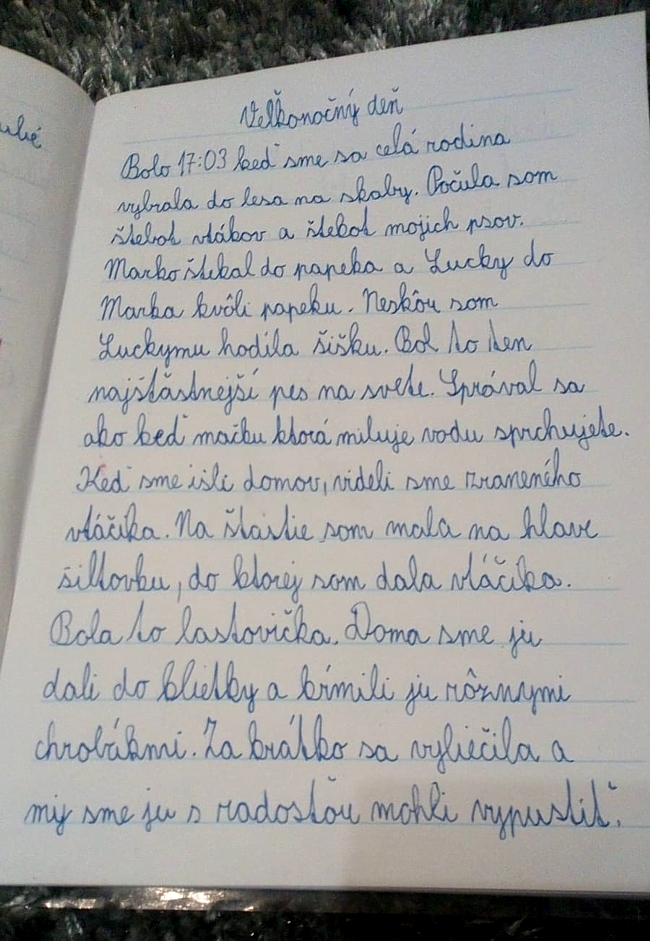 ubé
Veľkonočný deň
Bolo 17:03 keď sme sa celá rodina
vybrala do lesa na skaby. Počula som
štebot vtákov a štekot mojich psov.
Marko štekal do papeka a Lucky do
Marka kvôli papeku. Neskôr som
Luckymu hodila šišku. Bol to ten
najšťastnejší pes na svete. Správal sa
ako keď mačku ktorá miluje vodu sprchujete.
Keď sme išli domov, videli sme zraneného
vtáčika. Na šťastie som mala na hlave
šiltovku, do ktorej som dala vtáčika.
Bola to lastovička. Doma sme ju
dali do klietky a kŕmili ju rôznymi
chrobákmi. Za krátko sa vyliečila a
my sme ju s radosťou mohli vypustiť.